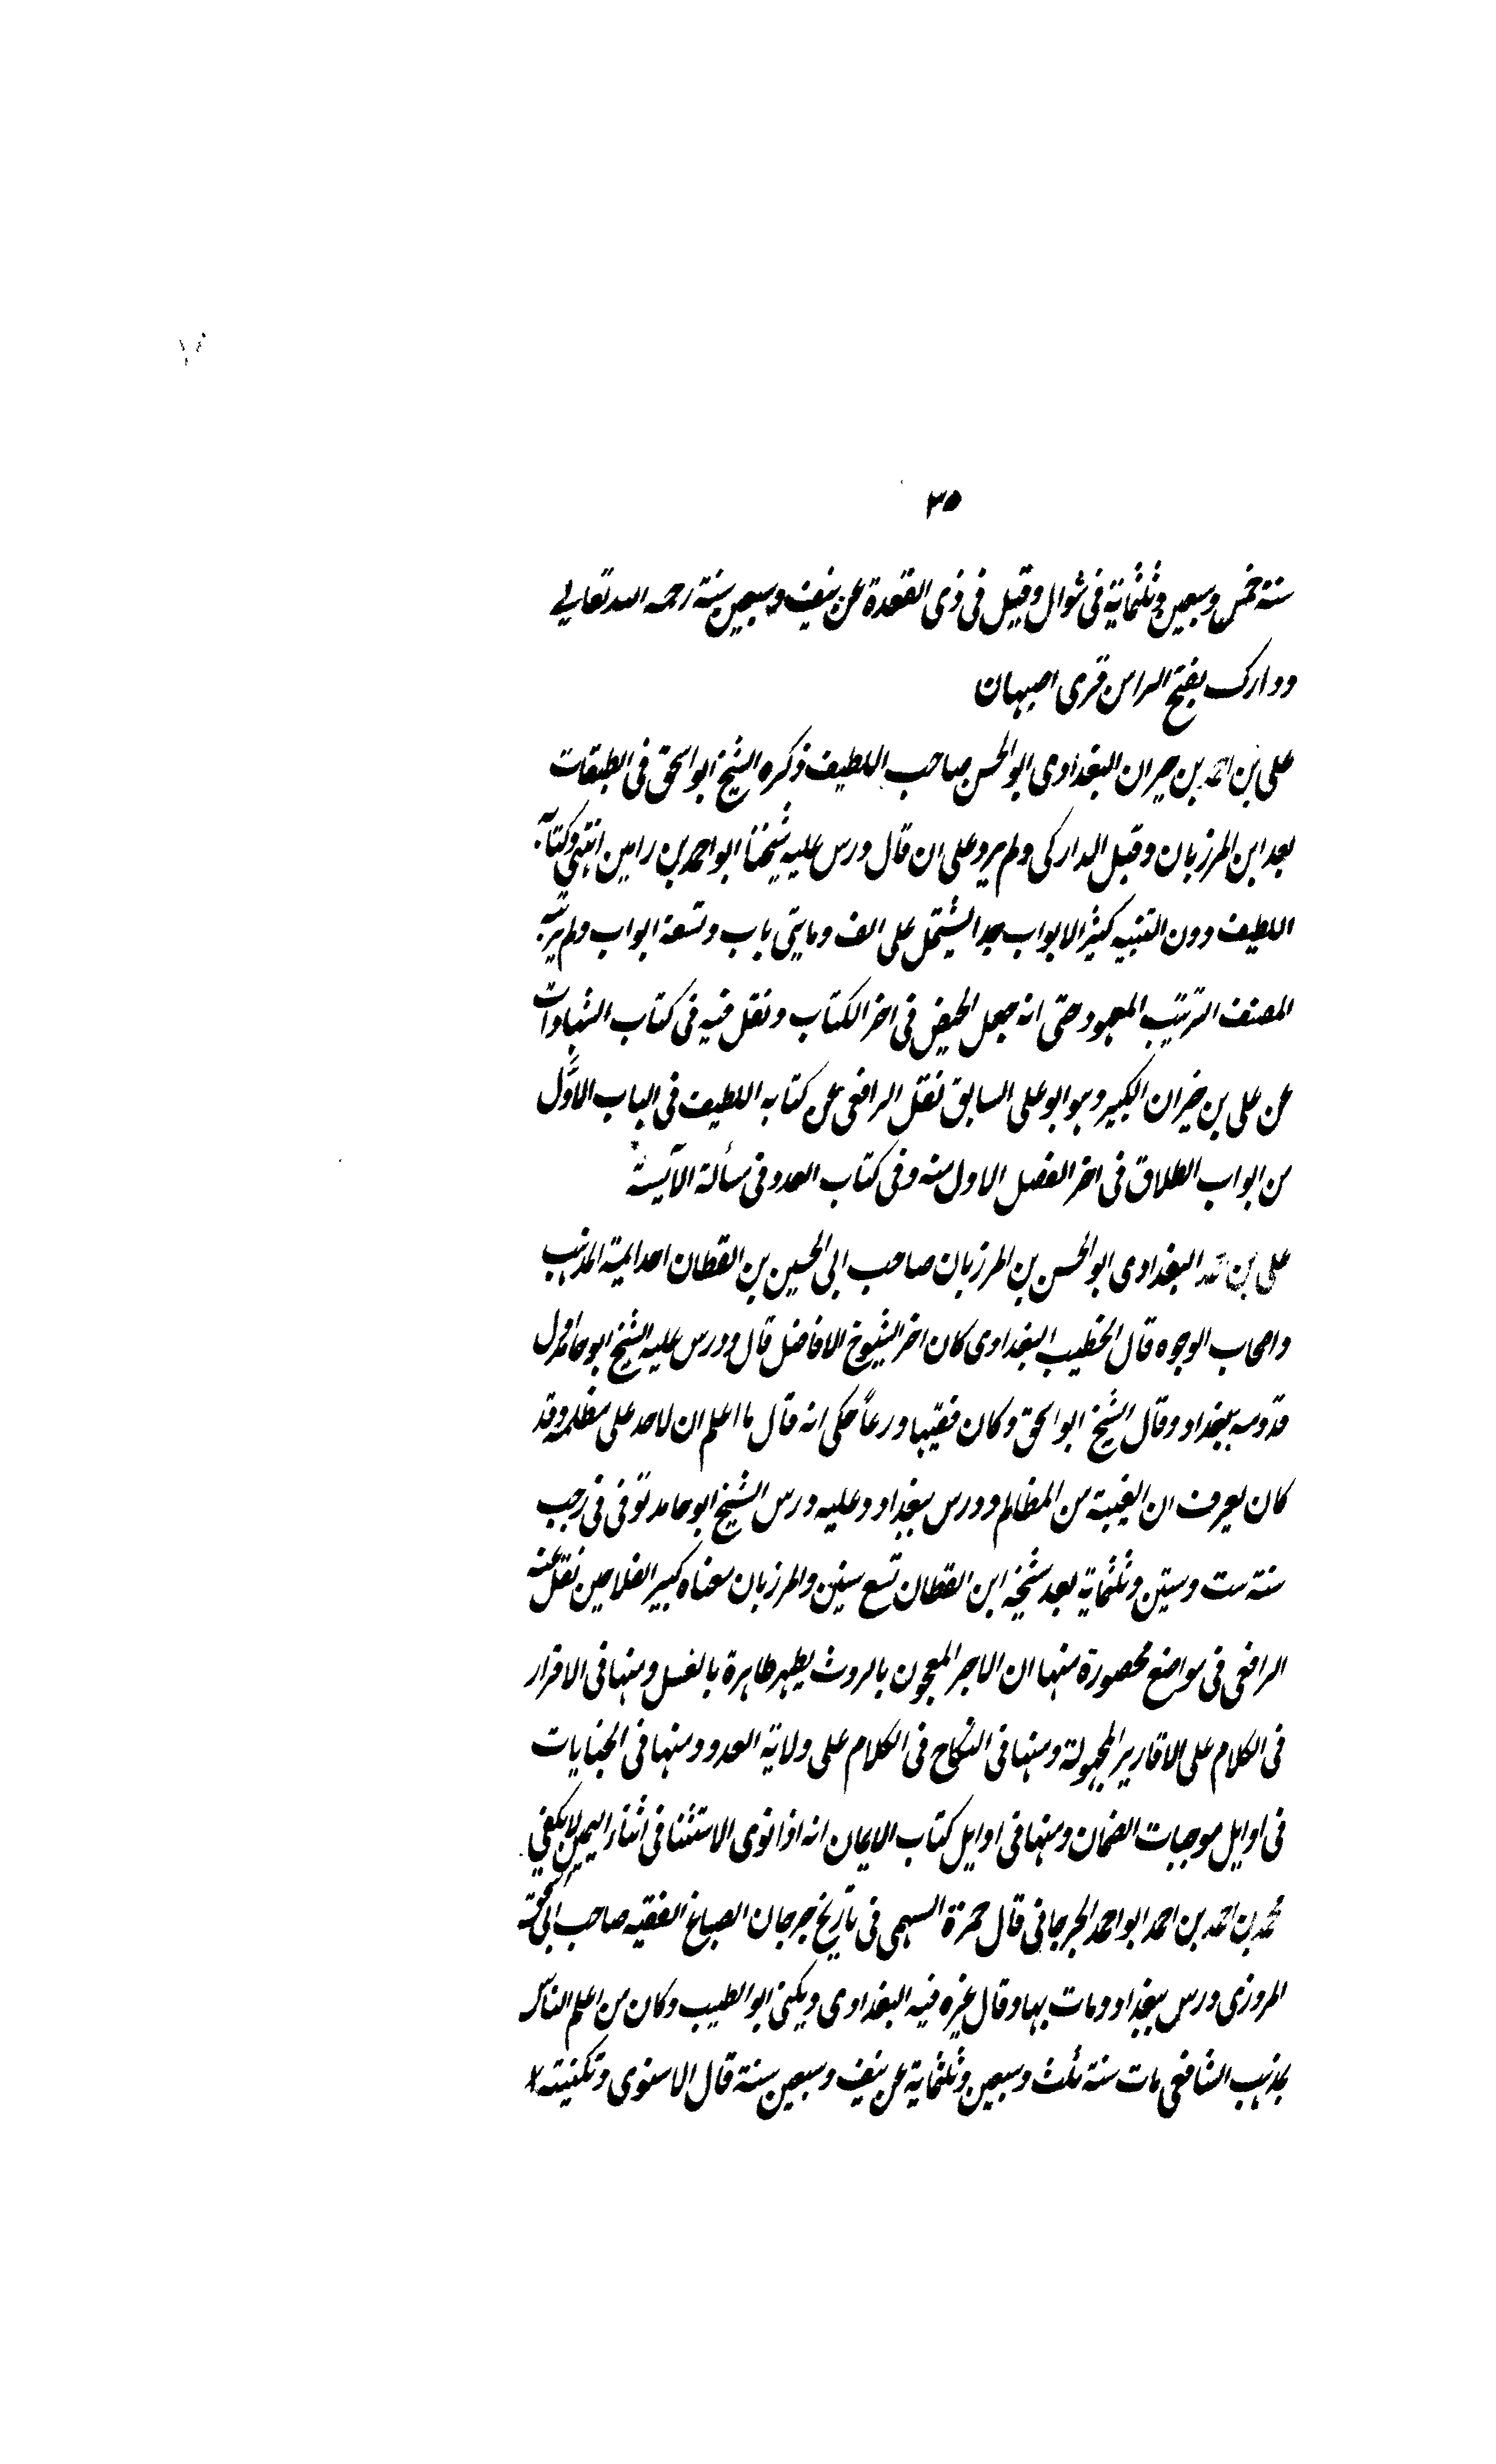 ٣٥
سنة خمس وسبعين وثلثماية فى شوال وقيل فى ذى القعدة عن نيف وسبعين سنة رحمه الله تعالى
ودارك بفتح الرا من قرى اصبهان
على بن احمد بن خيران البغدادى ابو الحسن صاحب اللطيف ذكره الشيخ ابو اسحق فى الطبقات
بعد ابن المرزبان وقبل الداركى ولم يزد على ان قال درس عليه شيخنا ابو احمد بن رامين انتهى وكتابه
اللطيف دون التنبيه كثير الابواب جدا يشتمل على الف ومايتى باب وتسعة ابواب ولم يرتبه
المصنف الترتيب المعهود حتى انه جعل الحيض فى اخر الكتاب ونقل فيه فى كتاب الشهادات
عن على بن خيران الكبير وهو ابو على السابق نقل الرافعى عن كتابه اللطيف فى الباب الاول
من ابواب الطلاق فى اخر الفصل الاول منه وفى كتاب العدد فى مسألة الآيسة
على بن احمد البغدادى ابو الحسن بن المرزبان صاحب ابى الحسين بن القطان احد ايمة المذهب
واصحاب الوجوه قال الخطيب البغدادى كان اخر الشيوخ الافاضل قال ودرس عليه الشيخ ابو حامد اول
قدومه بغداد وقال الشيخ ابو اسحق وكان فقيها ورعاً حكى انه قال ما اعلم ان لاحد على مظلمة وقد
كان يعرف ان الغيبة من المظالم ودرس ببغداد وعليه درس الشيخ ابو حامد توفى فى رجب
سنة ست وستين وثلثماية بعد شيخه ابن القطان تسع سنين والمرزبان معناه كبير الفلاحين نقل عنه
الرافعى فى مواضع محصورة منها ان الاجر المعجون بالروث يطهر ظاهره بالغسل ومنها فى الاقرار
فى الكلام على الاقارير المجهولة ومنها فى النكاح فى الكلام على ولاية العدو ومنها فى الجنايات
فى اوايل موجبات الضمان ومنها فى اوايل كتاب الايمان انه اذا نوى الاستثنا فى اثناء اليمين لا يكفى
محمد بن احمد بن احمد ابو احمد الجرجانى قال حمزة السهمى فى تاريخ جرجان الصباغ الفقيه صاحب ابى اسحق
المروزى درس ببغداد ومات بها وقال غيره فيه البغدادى ويكنى ابو الطيب وكان من اعلم الناس
بمذهب الشافعى مات سنة ثلث وسبعين وثلثماية عن نيف وسبعين سنة قال الاسنوى وتكنيته